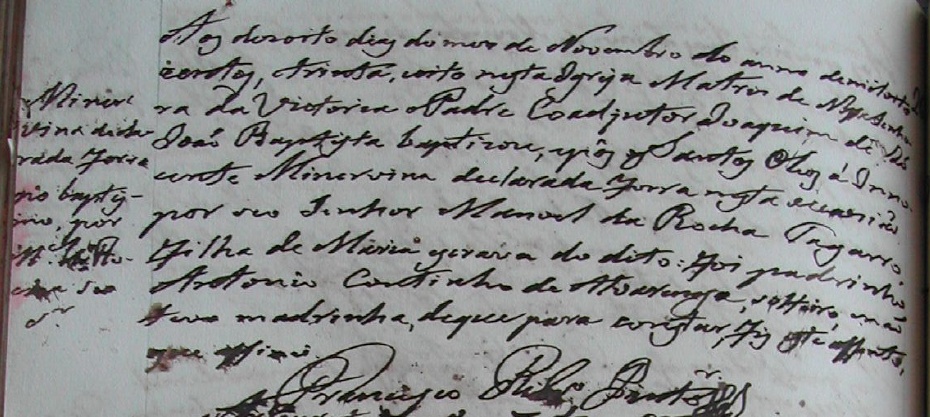 Miner
vina decla
rada Forra
no baptis
mo, por
seo
Sr
Aos dezoito dias do mes de Novembro do anno de mil oito
centos, e trinta, e oito nesta Igreja Matris de Nossa Senho
ra da Victoria o Padre Coadjutor Joaquim de
João Baptista baptizou, e pôs os Santos Oleos á Inno
cente Minervina declarada Forra nesta occazião
por seo Senhor Manoel da Rocha Tagarro,
Filha de Maria escrava do dito: foi padrinho
Antonio Coutinho de Alvarenga, solteiro, e não
teve madrinha, de que para constar, fis este assento,
que assino
Francisco Ribro Pinto